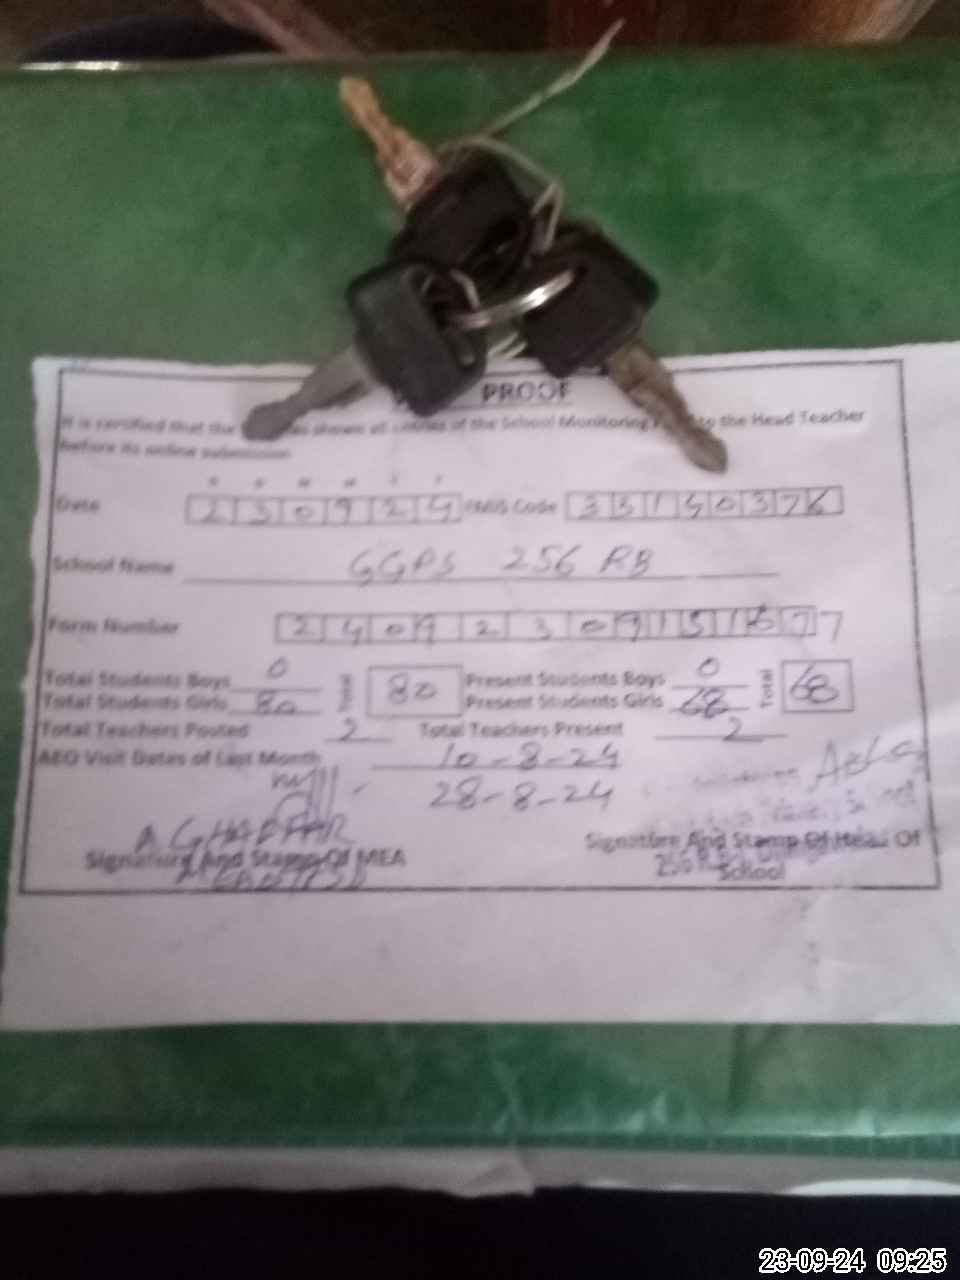 PROOF
It is certified that the has shown all entries of the School Monitoring to the Head Teacher
before its online submission
D D M M Y Y
Date 230924 EMIS Code 33140376
School Name GGPS 256 RB
Form Number
Total Students Boys 0 Total 80 Present Students Boys 0 Total 68
Total Students Girls 80 Present Students Girls 68
Total Teachers Posted 2 Total Teachers Present 2
AEO Visit Dates of Last Month 10-8-24
28-8-24
A GHAFFAR
Signature And Stamp Of MEA
Signature And Stamp Of Head Of
School
23-09-24 09:25